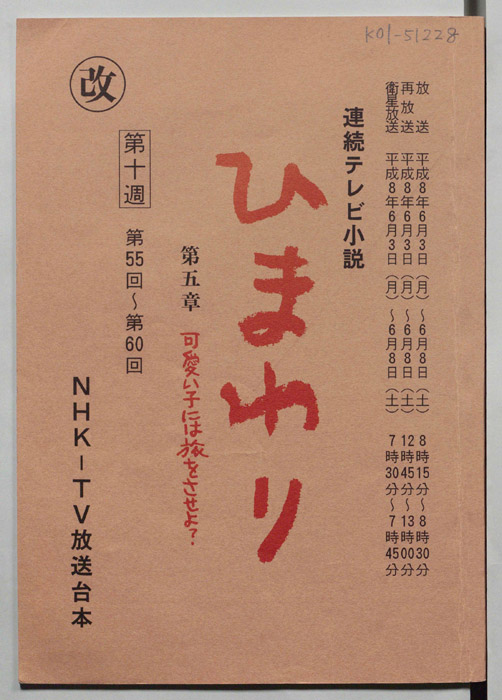 K01-51228
放送 平成8年6月3日(月)~6月8日(土) 8時15分~8時30分
再放送 平成8年6月3日(月)~6月8日(土) 12時45分~13時00分
衛星放送 平成8年6月3日(月)~6月8日(土) 7時30分~7時45分
連続テレビ小説
ひまわり
第五章 可愛い子には旅をさせよ?
改
第十週 第55回~第60回
NHK-TV放送台本